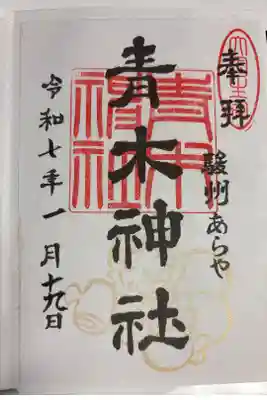 奉拝
駿州あらや
青木神社
令和七年一月十九日